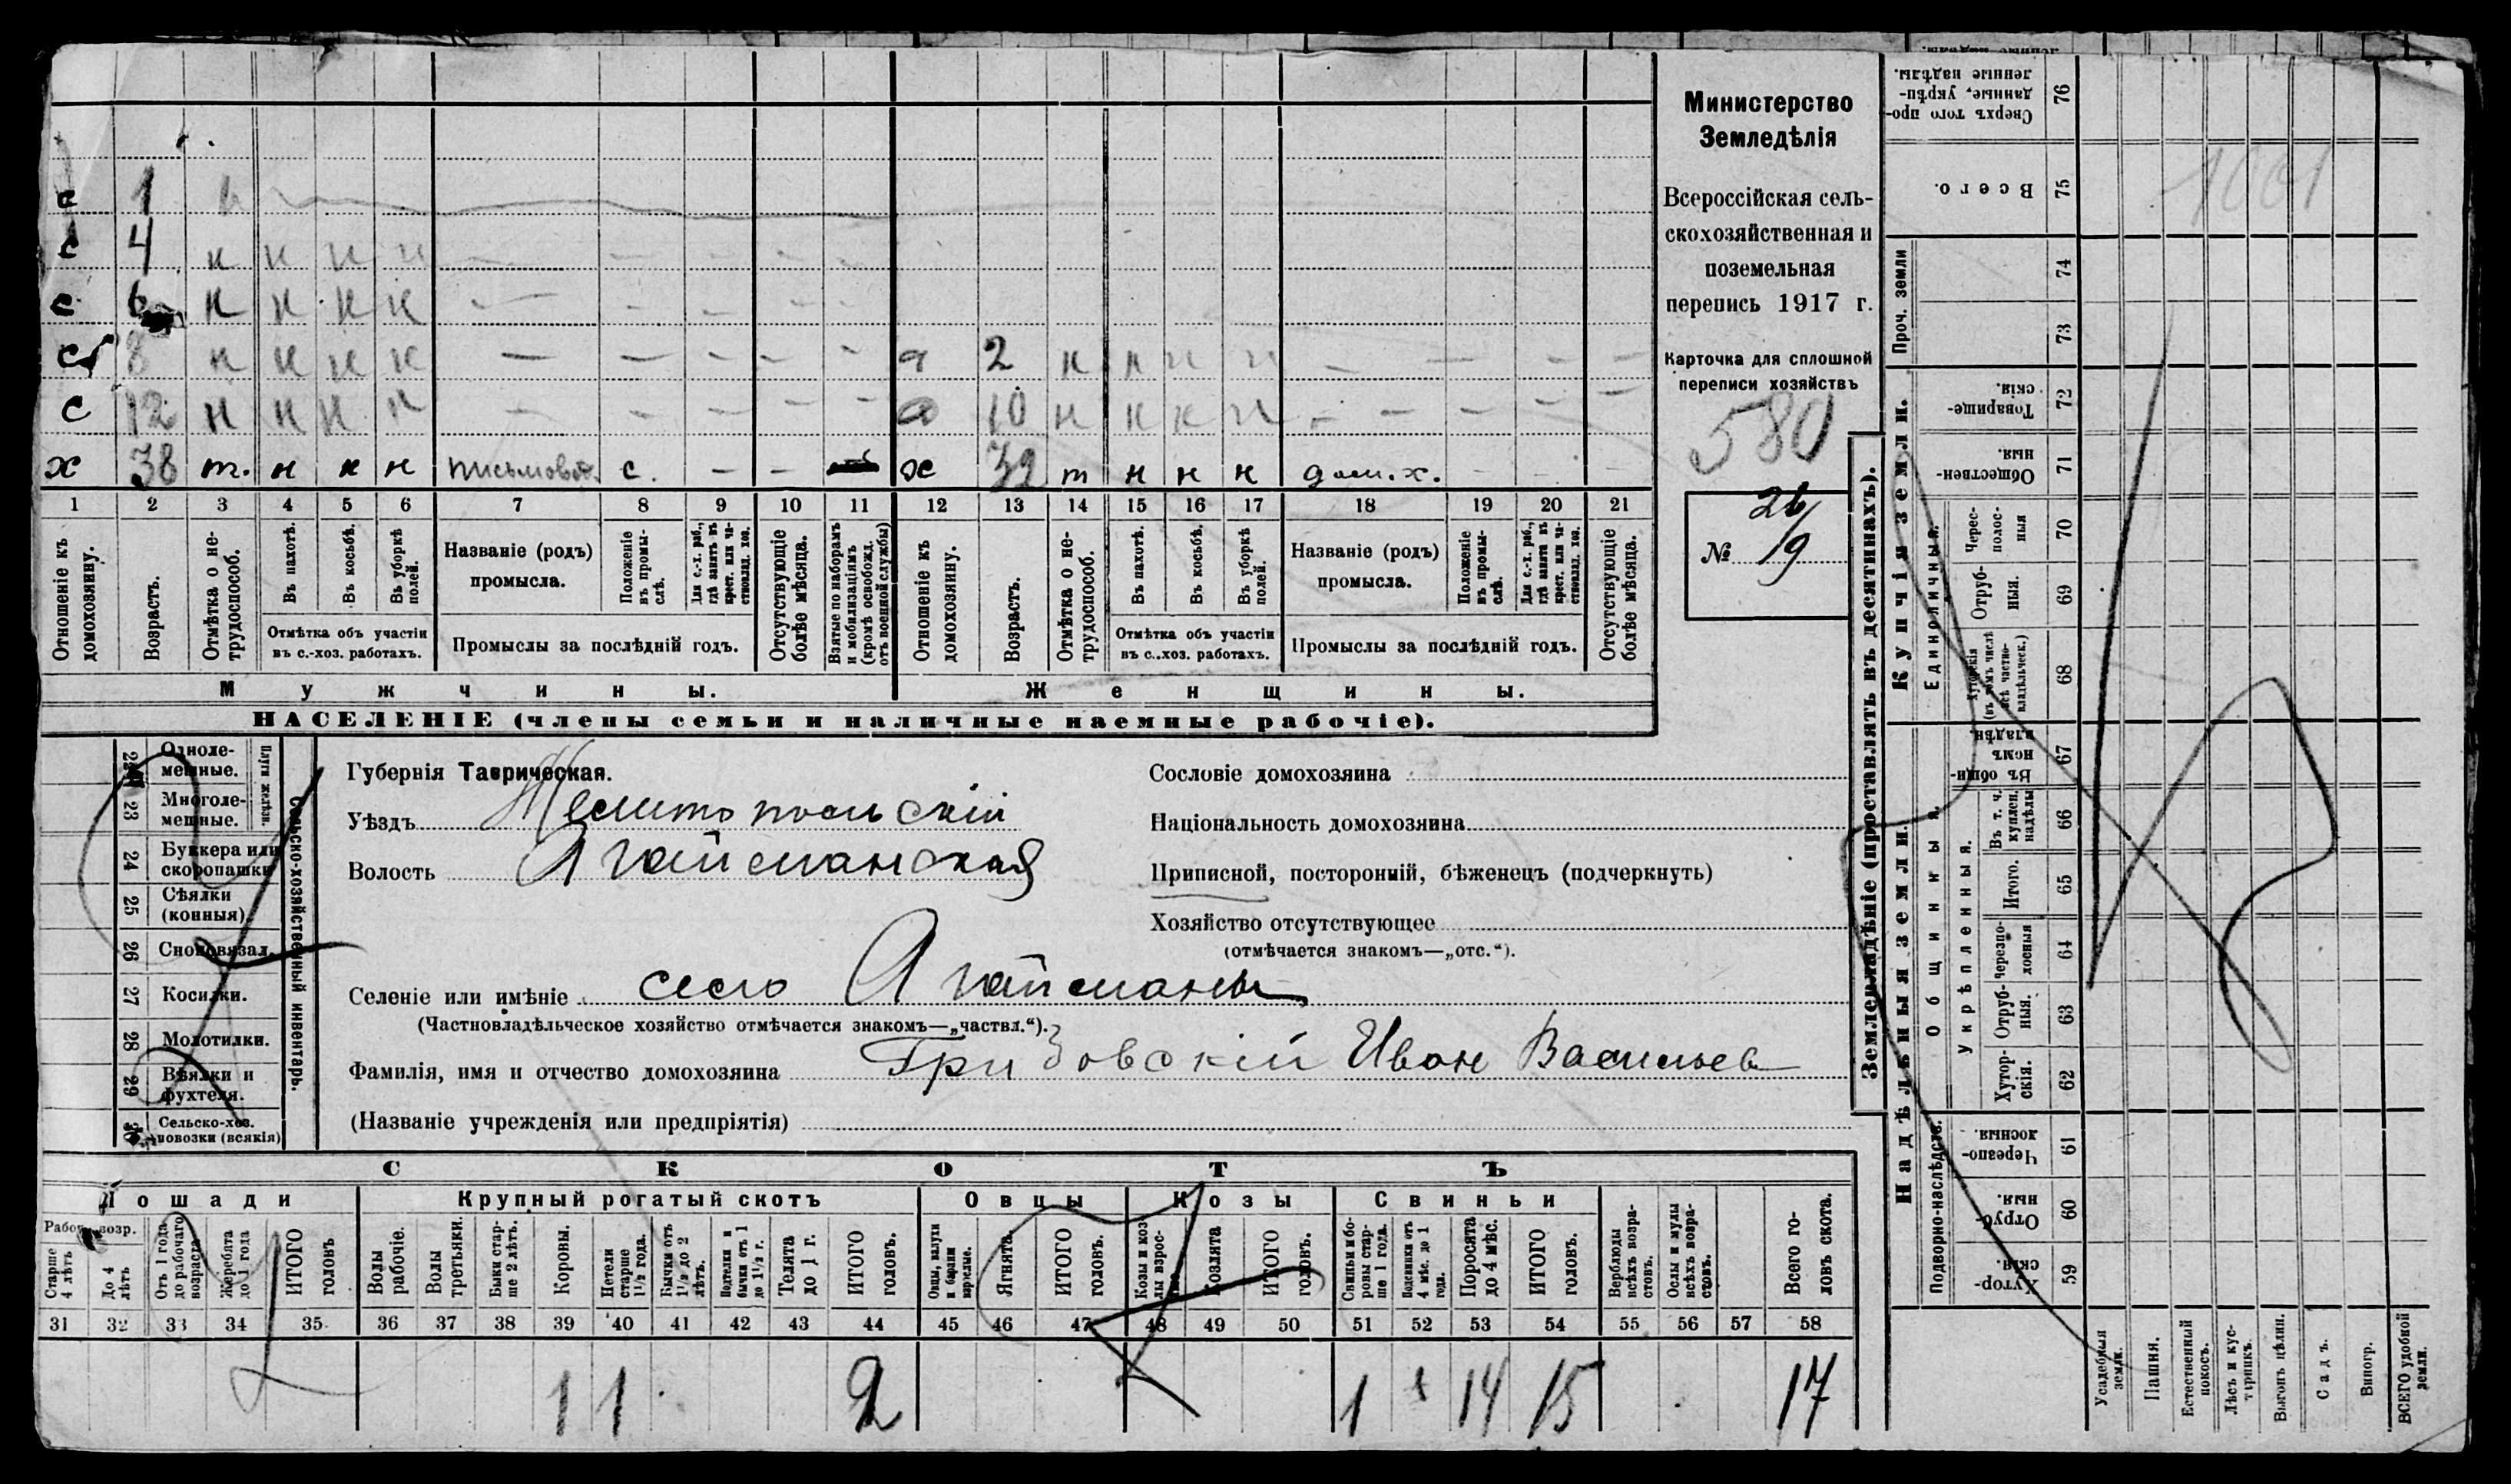 с 1 н
с 4 н н н н — — — — —
с 6 н н н н — — — — —
с 8 н н н н — — — — — д 2 н н н н — — — —
с 12 н н н н — — — — — д 10 н н н н — — — —
х 38 т. н н н письмовод. с. — — х 32 т н н н дом. х. — — —
1 2 3 4 5 6 7 8 9 10 11 12 13 14 15 16 17 18 19 20 21
Отношеніе къ домохозяину.
Возрастъ.
Отмѣтка о не-трудоспособ.
Въ пахотѣ.
Въ косьбѣ.
Въ уборкѣ полей.
Отмѣтка объ участіи въ с.-хоз. работахъ.
Названіе (родъ) промысла.
Положеніе въ промы-слѣ.
Для с.-х. раб., гдѣ занятъ въ крест. или ча-стновлад. хоз.
Промыслы за послѣдній годъ.
Отсутствующіе болѣе мѣсяца.
Взятые по наборамъ и мобилизаціямъ (кромѣ освобожд. отъ военной службы)
Отношеніе къ домохозяину.
Возрастъ.
Отмѣтка о не-трудоспособ.
Въ пахотѣ.
Въ косьбѣ.
Въ уборкѣ полей.
Отмѣтка объ участіи въ с.-хоз. работахъ.
Названіе (родъ) промысла.
Положеніе въ промы-слѣ.
Для с.-х. раб., гдѣ занята въ крест. или ча-стновлад. хоз.
Промыслы за послѣдній годъ.
Отсутствующіе болѣе мѣсяца.
Мужчины.
Женщины.
НАСЕЛЕНІЕ (члены семьи и наличные наемные рабочіе).
Министерство
Земледѣлія
Всероссійская сель-
скохозяйственная и
поземельная
перепись 1917 г.
Карточка для сплошной
переписи хозяйствъ
580
№ 26/9
Плуги желѣзн.
Одноле-мешные.
23 Многоле-мешные.
24 Буккера или скоропашки
25 Сѣялки (конныя).
26 Сноповязал.
27 Косилки.
28 Молотилки.
29 Вѣялки и фухтеля.
30 Сельско-хоз. повозки (всякія)
Сельско-хозяйственный инвентарь.
Губернія Таврическая.
Уѣздъ Мелитопольскій
Волость Агайманская
Сословіе домохозяина
Національность домохозяина
Приписной, посторонній, бѣженецъ (подчеркнуть)
Хозяйство отсутствующее
(отмѣчается знакомъ—„отс.“).
Селеніе или имѣніе село Агайманы
(Частновладѣльческое хозяйство отмѣчается знакомъ—„частвл.“).
Фамилія, имя и отчество домохозяина Гризовскій Иван Васильев
(Названіе учрежденія или предпріятія)
СКОТЪ
Лошади
Крупный рогатый скотъ
Овцы
Козы
Свиньи
Рабоч. возр.
Старше 4 лѣтъ
До 4 лѣтъ
Отъ 1 года до рабочаго возраста
Жеребята до 1 года
ИТОГО головъ
Волы рабочіе.
Волы третьяки.
Быки стар-ше 2 лѣтъ.
Коровы.
Нетели старше 1½ года.
Бычки отъ 1½ до 2 лѣтъ.
Телята до 1 г.
ИТОГО головъ.
Ягнята.
ИТОГО головъ.
Козлята
ИТОГО головъ.
Свиньи и бо-ровы стар-ше 1 года.
Подсвинки отъ 4 мѣс. до 1 года.
Поросята до 4 мѣс.
ИТОГО головъ.
Верблюды всѣхъ возра-стовъ.
Ослы и мулы всѣхъ возра-стовъ.
Всего го-ловъ скота.
31 32 33 34 35 36 37 38 39 40 41 42 43 44 45 46 47 48 49 50 51 52 53 54 55 56 57 58
1 1 2 1 14 15 17
Землевладѣніе (проставлять въ десятинахъ).
Надѣльныя земли.
Купчія земли.
Проч. земли
Подворно-наслѣдств.
Общинныя.
Укрѣпленныя.
Единоличныя.
76 Сверхъ того про-данные, укрѣп-ленные надѣлы.
75 Всего.
74
73
72 Товарище-скія.
71 Обществен-ныя.
70 Черес-полос-ныя
69 Отруб-ныя.
68 Хуторскія (въ томъ числѣ всѣ частно-владѣльческ.)
67 Въ общин-номъ владѣн.
66 Въ т. ч. куплен. надѣлы
65 Итого.
64 Черезпо-лосныя
63 Отруб-ныя.
62 Хутор-скія.
61 Черезпо-лосныя.
60 Отруб-ныя.
59 Хутор-скія.
1001
Усадебныя земли.
Пашня.
Естественный покосъ.
Лѣсъ и кус-тарникъ.
Выгонъ цѣлин.
Садъ.
Виногр.
ВСЕГО удобной земли.